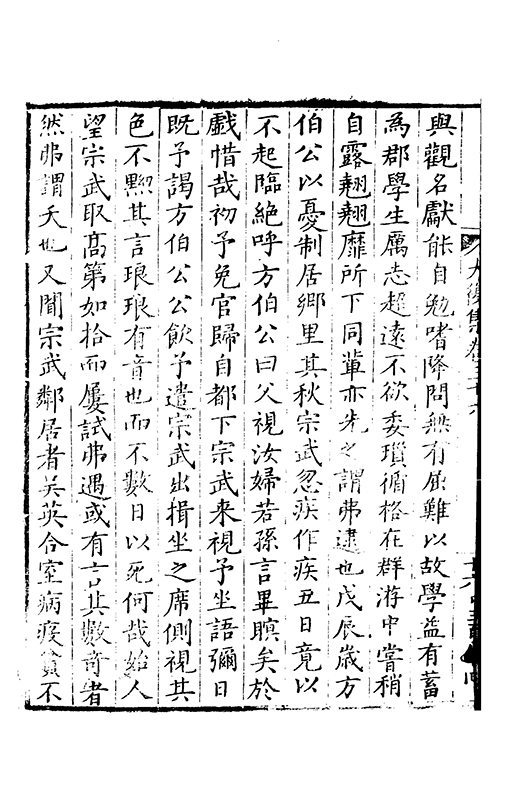 與觀名獻能自勉嗜降問無有屈難以故學益有蓄
為郡學生厲志超遠不欲委瑣循格在群游中嘗稍
自露翹翹靡所下同輩亦先之謂弗逮也戊辰歲方
伯公以憂制居鄉里其秋宗武忽疾作疾五日竟以
不起臨絶呼方伯公曰父視汝婦若孫言畢瞑矣於
戲惜哉初予免官歸自都下宗武來視予坐語彌日
既予謁方伯公公飲予遣宗武出揖坐之席側視其
色不黝其言琅琅有音也而不數日以死何哉始人
望宗武取高第如拾而屢試弗遇或有言其數奇者
然弗謂夭也又聞宗武鄰居者吳英合室病疫貧不
大復集卷三十六